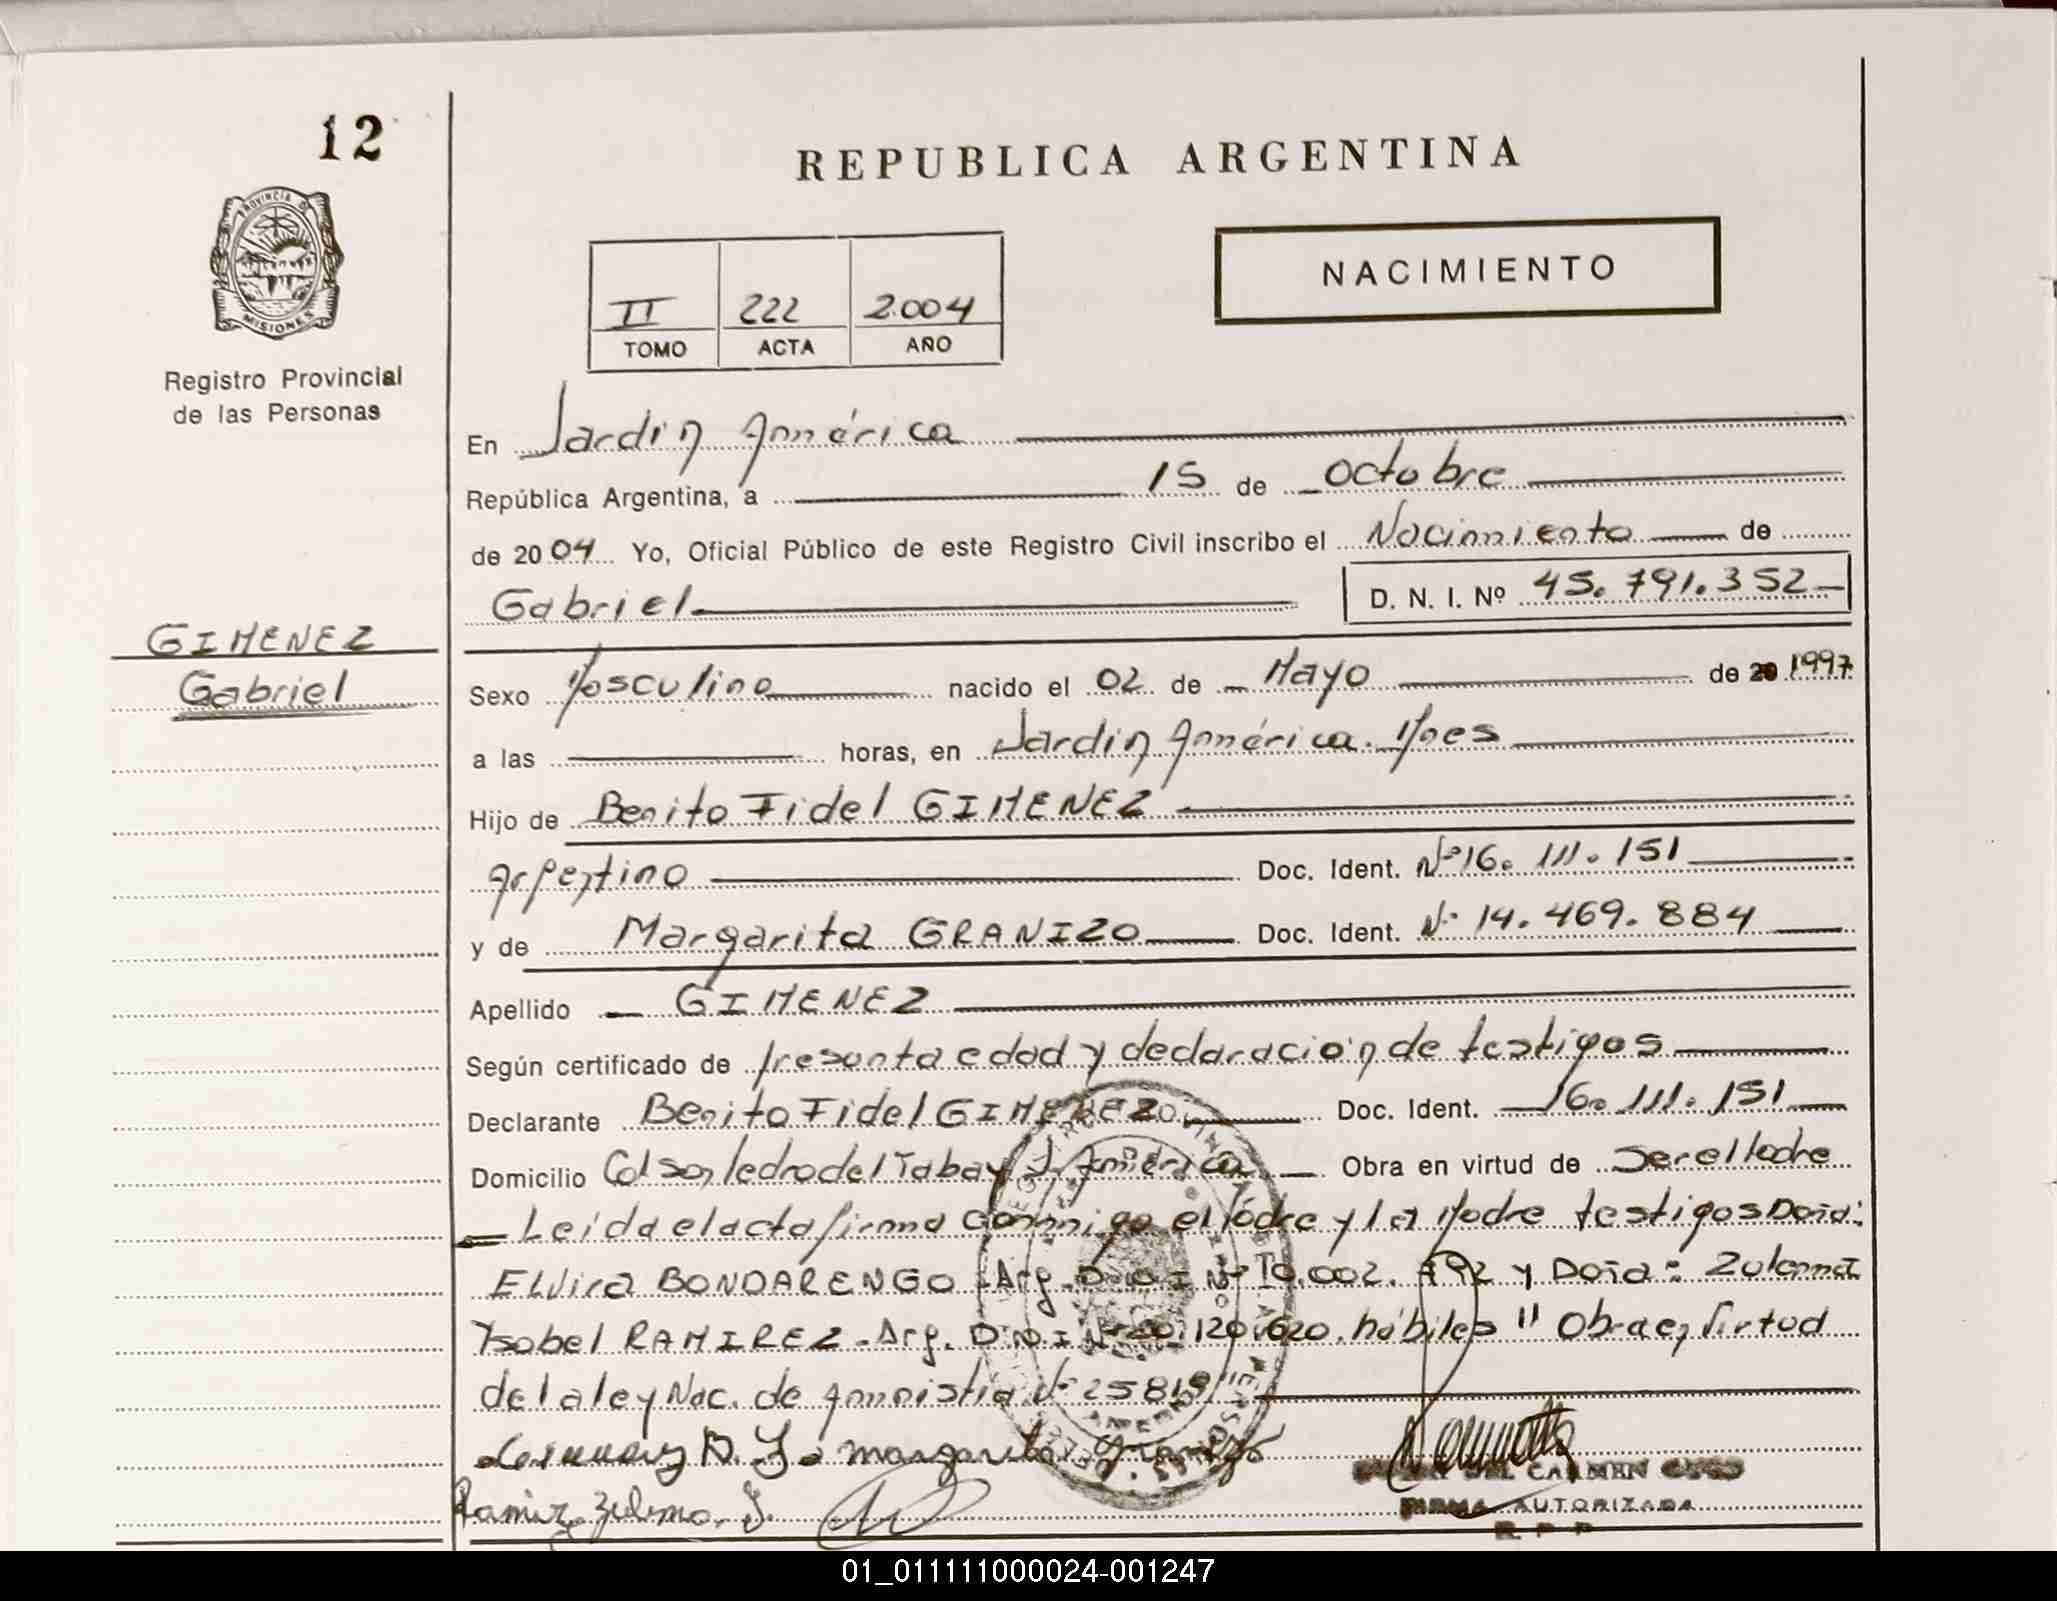 12
REPUBLICA ARGENTINA
PROVINCIA DE
MISIONES
Registro Provincial
de las Personas
NACIMIENTO
II 222 2.004
TOMO ACTA AÑO
En Jardín América
República Argentina, a 15 de octubre
de 2004 Yo, Oficial Público de este Registro Civil inscribo el Nacimiento de
Gabriel D. N. I. Nº 45.791.352
GIMENEZ
Gabriel
Sexo Masculino nacido el 02 de Mayo de 20 1997
a las horas, en Jardín América. Mnes
Hijo de Benito Fidel GIMENEZ
Argentino Doc. Ident. Nº 16.111.151
y de Margarita GRANIZO Doc. Ident. Nº 14.469.884
Apellido GIMENEZ
Según certificado de presunta edad y declaración de testigos
Declarante Benito Fidel GIMENEZ Doc. Ident. 16.111.151
Domicilio Col San Pedro del Tabay J. América Obra en virtud de Ser el Padre
Leída el acta firma conmigo el Padre y la Madre testigos Doña:
Elvira BONDARENGO Arg. D.N.I Nº 10.002. y Doña: Zulema
Ysabel RAMIREZ - Arg. D.N.I Nº 20.120.620. hábiles " Obra en Virtud
de la ley Nac. de Amnistía Nº 25819"
B. F. margarita granizo
Ramirez Zulema. I.
DEL CARMEN
FIRMA AUTORIZADA
R P P
01_011111000024-001247